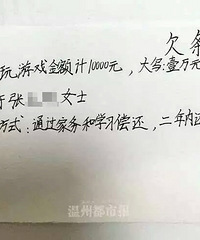 欠条
玩游戏金额计10000元,大写:壹万元
于张 女士
方式:通过家务和学习偿还,二年内还
温州都市报